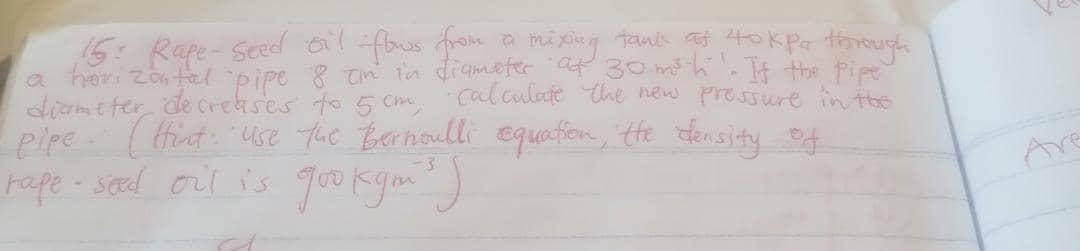 15: Rape-seed oil flows from a mixing tank at 40kPa through
a horizontal pipe 8 cm in diameter at 30 m³h⁻¹. If the pipe
diameter decreases to 5 cm, calculate the new pressure in the
pipe. (Hint: use the Bernoulli equation, the density of
rape-seed oil is 900kgm⁻³)
Are